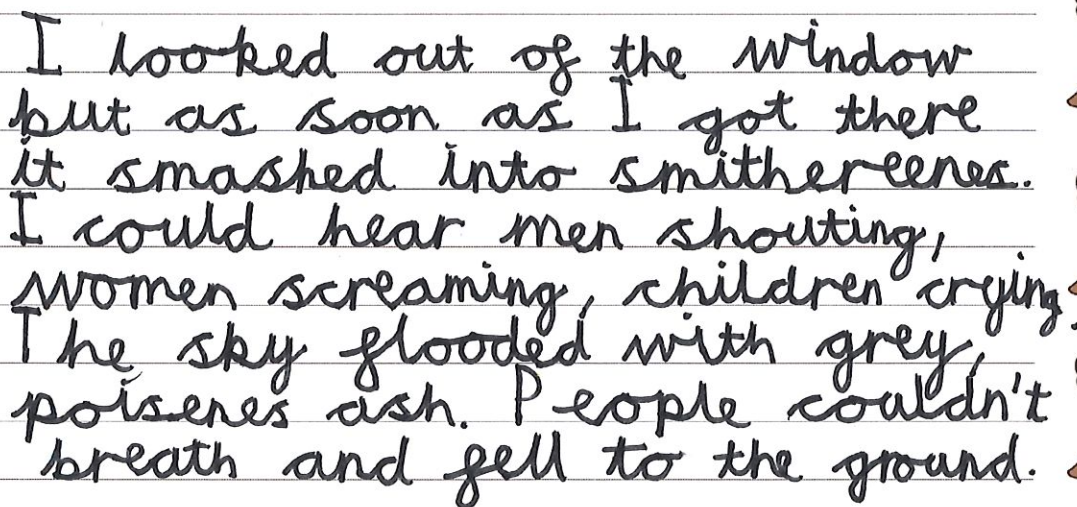 I looked out of the window
but as soon as I got there
it smashed into smithereenes.
I could hear men shouting,
women screaming, children crying.
The sky flooded with grey,
poisenes ash. People couldn't
breath and fell to the ground.